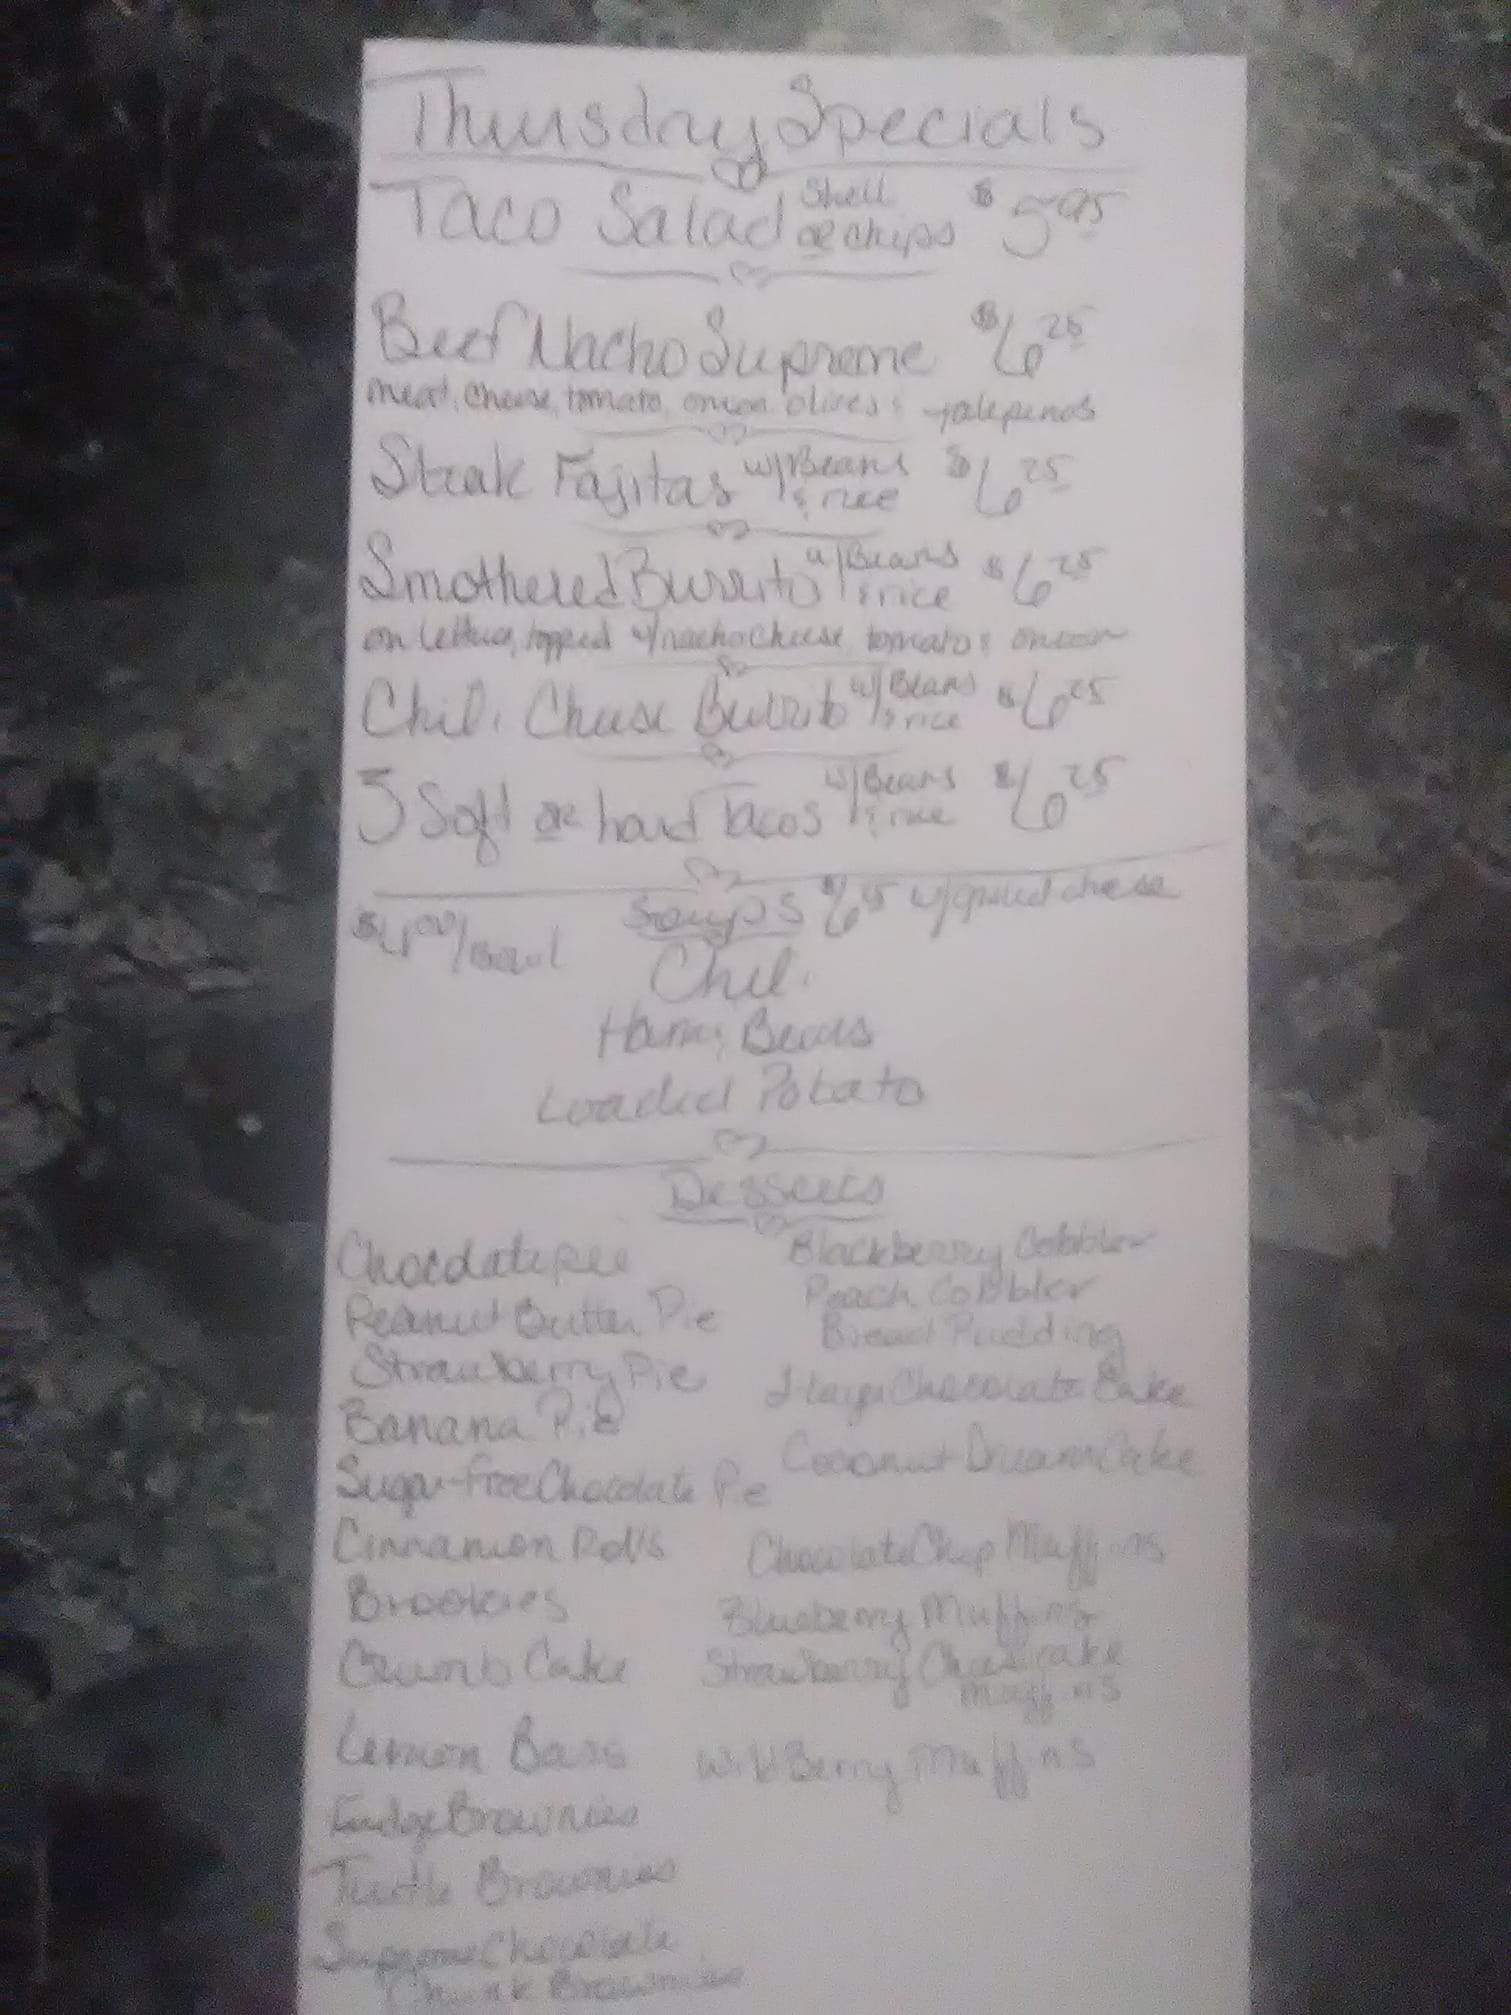 Thursday Specials
Taco Salad Shell or chips $5.95
Beef Nacho Supreme $6.25
meat, cheese, tomato, onion, olives & jalepenos
Steak Fajitas w/Beans & rice $6.25
Smothered Burrito w/Beans & rice $6.25
on lettuce, topped w/nacho cheese, tomato & onion
Chili Cheese Burrito w/Beans & rice $6.25
3 Soft or hard Tacos w/Beans & rice $6.25
$4.00/Bowl Soups w/ grilled cheese
Chili
Ham & Beans
Loaded Potato
Desserts
Chocolate pie
Peanut Butter Pie
Strawberry Pie
Banana Pie
Sugar-free Chocolate Pie
Cinnamon Rolls
Brookies
Crumb Cake
Lemon Bars
Fudge Brownies
Turtle Brownies
Supreme Chocolate
Chunk Brownies
Blackberry Cobbler
Peach Cobbler
Bread Pudding
Chocolate Cake
Coconut Dream Cake
Chocolate Chip Muffins
Blueberry Muffins
Strawberry Cheesecake
Muffins
Wild Berry Muffins